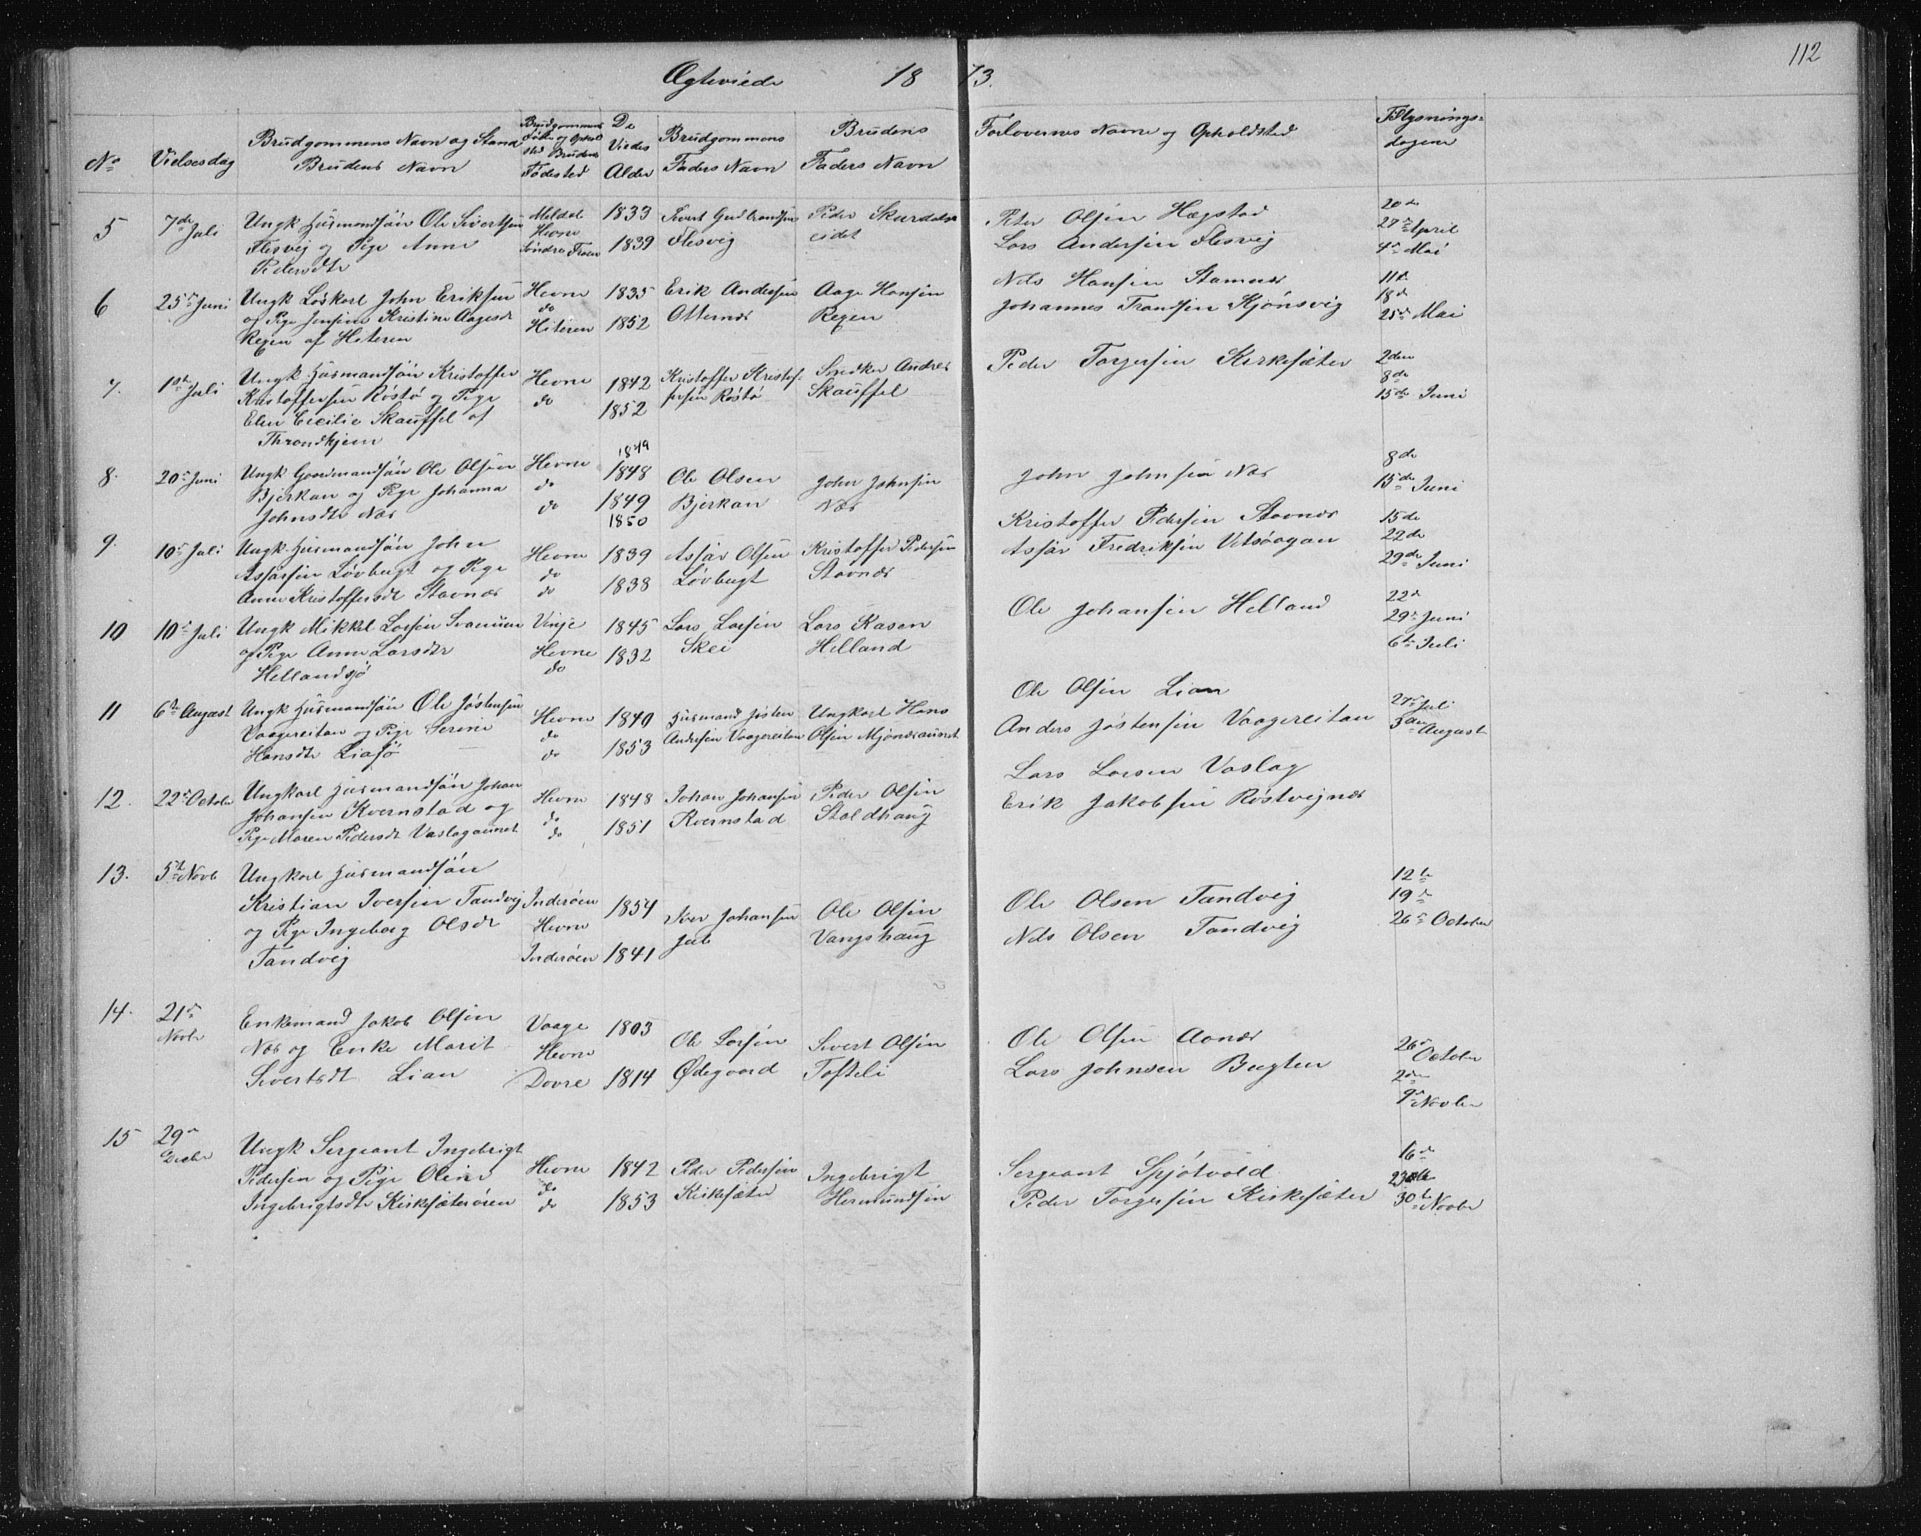 112
Ægteviede 18 73.
No
Vielsesdag
Brudgommens Navn og Stand
Brudens Navn
Brudgommens
Føde og Opholds
sted Brudens
Fødested
De
Viedes
Alder
Brudgommens
Faders Navn
Brudens
Faders Navn
Forlovernes Navne og Opholdsted
Tillysnings-
dagene
5
7de Juli
Ungk Husmandsøn Ole Sivertsen
Flesvig og Pige Anne
Pedersdtr
Meldal
Hevne
Søndre Froen
1833
1839
Sivert Gudbrandsen
Flesvig
Peder Skardals
eidet
Peter Olsen Hægstad
Lars Andersen Flesvig
20de
27de April
4de Mai
6
25de Juni
Ungk Løskarl John Eriksen
og Pige Jensine Kristine Aagesdr
Regen af Hiteren
Hevne
do
Hiteren
1835
1852
Erik Andersen
Otternæs
Aage Hansen
Regen
Nils Hansen Stamnæs
Johannes Frandsen Kjønsvig
11de
18de
25de Mai
7.
1ste Juli
Ungk Husmandsøn Kristoffer
Kristoffersen Røstø og Pige
Elen Cecilie Skauffel af
Throndhjem
Hevne
do
1842
1852
Kristoffer Kristof-
fersen Røstø
Snedker Andres
Skauffel
Peder Torgersen Kirkesæter
2den
8de
15de Juni
8.
20de Juni
Ungk Gaardmandsøn Ole Olsen
Bjerkan og Pige Johanna
Johnsdtr Næs
Hevne
do
do
1849
1848
1849
1850
Ole Olsen
Bjerkan
John Johnsen
Næs
John Johnsen Næs
8de
15de Juni
9.
10de Juli
Ungk Husmandsøn John
Assarsen Løvbugt og Pige
Anne Kristoffersdt Stavnæs
Hevne
do
do
1839
1838
Assar Olsen
Løvbugt
Kristoffer Pedersen
Stavnæs
Kristoffer Pedersen Stavnæs
Assar Fredriksen Vitsøagan
15de
22de
29de Juni
10
10de Juli
Ungk Mikkel Larsen Svanem
og Pige Anne Larsdtr
Hellandsjø
Vinje
Hevne
do
1845
1832
Lars Larsen
Skei
Lars Rasen
Helland
Ole Johansen Helland
22de
29de Juni
6te Juli
11
6te August
Ungk Husmandsøn Ole Jøstensen
Vaagereitan og Pige Serine
Hansdtr Liasø
Hevne
do
do
1840
1853
Husmand Jøsten
Andersen Vaagereitan
Ungkarl Hans
Olsen Mjønæsaunet
Ole Olsen Lian
Anders Jøstensen Vaagereitan
27de Juli
3die August
12.
22de October
Ungkarl Husmandsøn Johan
Johansen Kvernstad og
Pige Maren Pedersdt Vaslagaunet
Hevne
do
do
1848
1851
Johan Johansen
Kvernstad
Peder Olsen
Stoldhaug
Lars Larsen Vaslag
Erik Jakobsen Røstvignæs
13.
5te Novb
Ungkarl Husmandsøn
Kristian Iversen Tandvig
og Pige Ingeborg Olsdr
Tandvig
Inderøen
Hevne
Inderøen
1854
1841
Iver Johansen
Ole Olsen
Vangshaug
Ole Olsen Tandvig
Nils Olsen Tandvig
12te
19de
26de October
14.
21de
Novbr
Enkemand Jakob Olsen
Næs og Enke Marit
Sivertsdt Lian
Vaage
Hevne
Dovre
1803
1814
Ole Larsen
Ødegaard
Sivert Olsen
Tofteli
Ole Olsen Aanæs
Lars Johnsen Bugten
26de
October
2den
9de Novbr
15
29de
Decbr
Ungk Sergeant Ingebrigt
Pedersen og Pige Oline
Ingebrigtsdtr Kirkesæterøren
Hevne
do
do
1842
1853
Peder Pedersen
Kirkesæter
Ingebrigt
Hermundsen
Sergeant Spjøtvold
Peder Torgersen Kirkesæter
16de
23de
30te Novbr